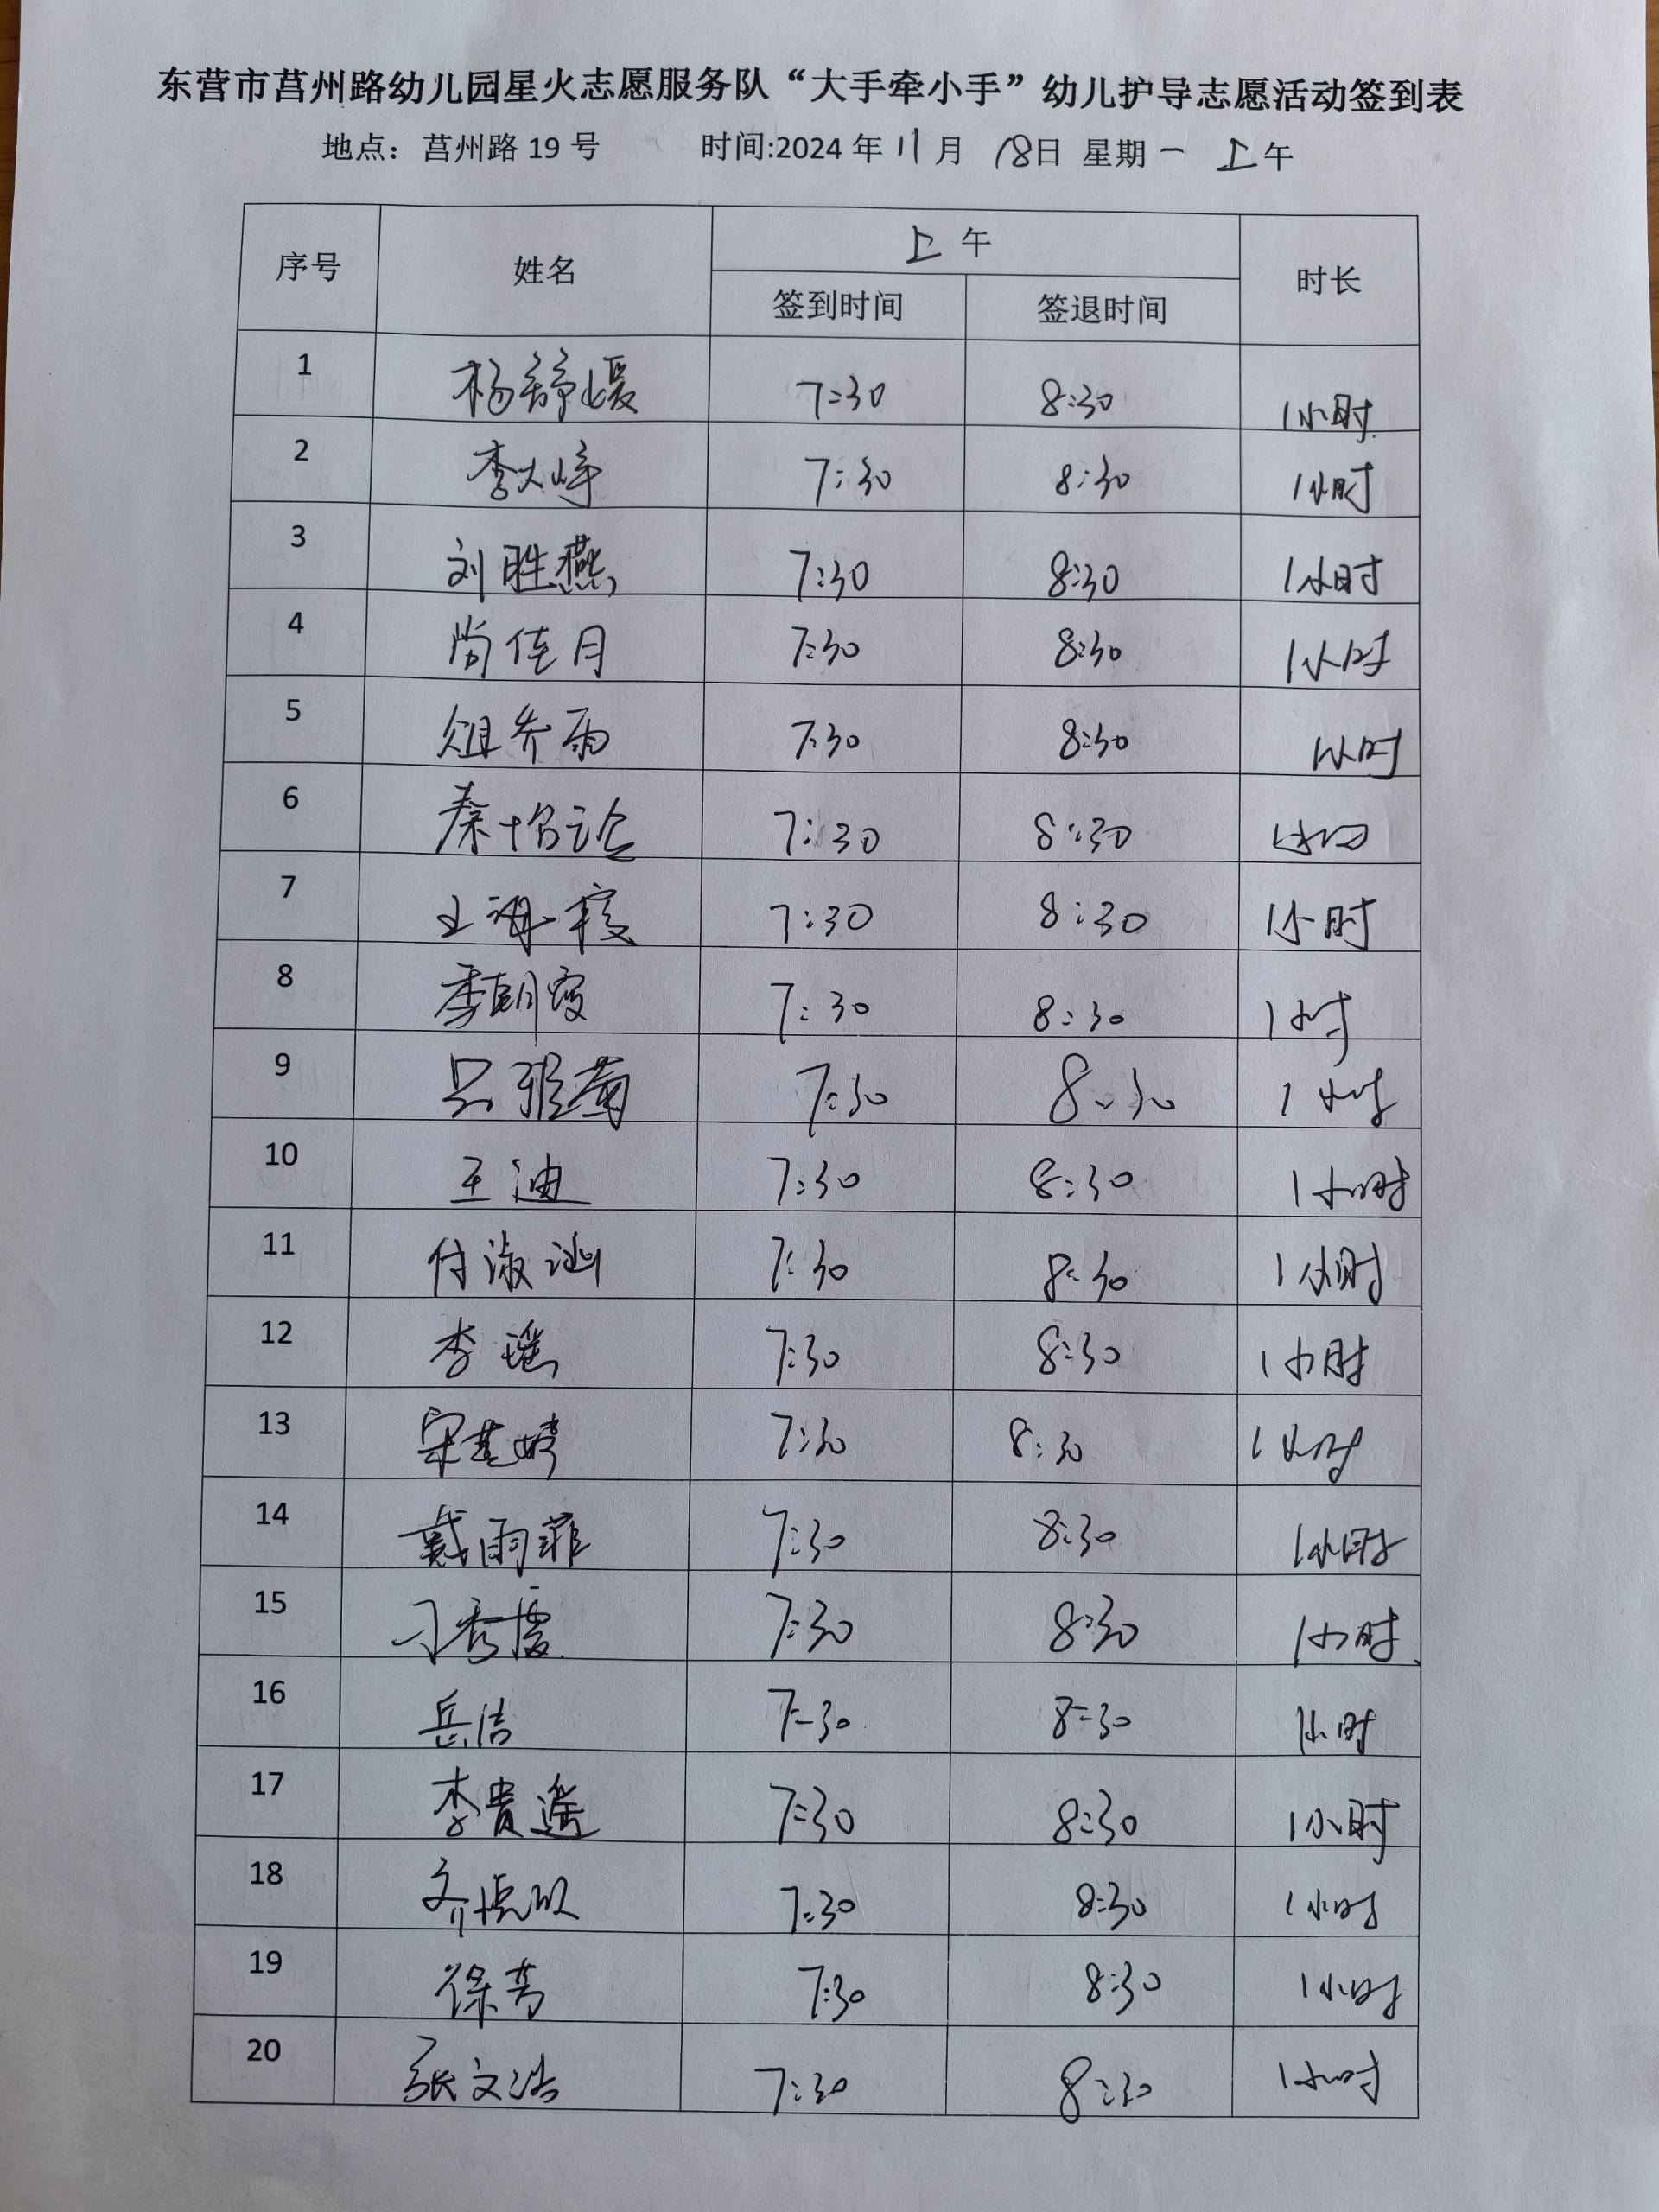 东营市莒州路幼儿园星火志愿服务队“大手牵小手”幼儿护导志愿活动签到表
地点：莒州路 19 号 时间:2024 年 11 月 18日 星期一 上午
序号 姓名 上午 时长
签到时间 签退时间
1 杨舒媛 7:30 8:30 1小时
2 李 7:30 8:30 1小时
3 刘胜燕 7:30 8:30 1小时
4 尚佳月 7:30 8:30 1小时
5 俎乔雨 7:30 8:30 1小时
6 秦 7:30 8:30
7 王海 7:30 8:30 1小时
8 季朝霞 7:30 8:30 1小时
9 吕雅菊 7:30 8:30 1小时
10 王迪 7:30 8:30 1小时
11 付淑 7:30 8:30 1小时
12 李瑶 7:30 8:30 1小时
13 宋 婷 7:30 8:30 1小时
14 戴雨菲 7:30 8:30 1小时
15 刁秀霞 7:30 8:30 1小时
16 岳洁 7:30 8:30 1小时
17 李贵遥 7:30 8:30 1小时
18 齐 7:30 8:30 1小时
19 徐芳 7:30 8:30 1小时
20 张文洁 7:30 8:30 1小时